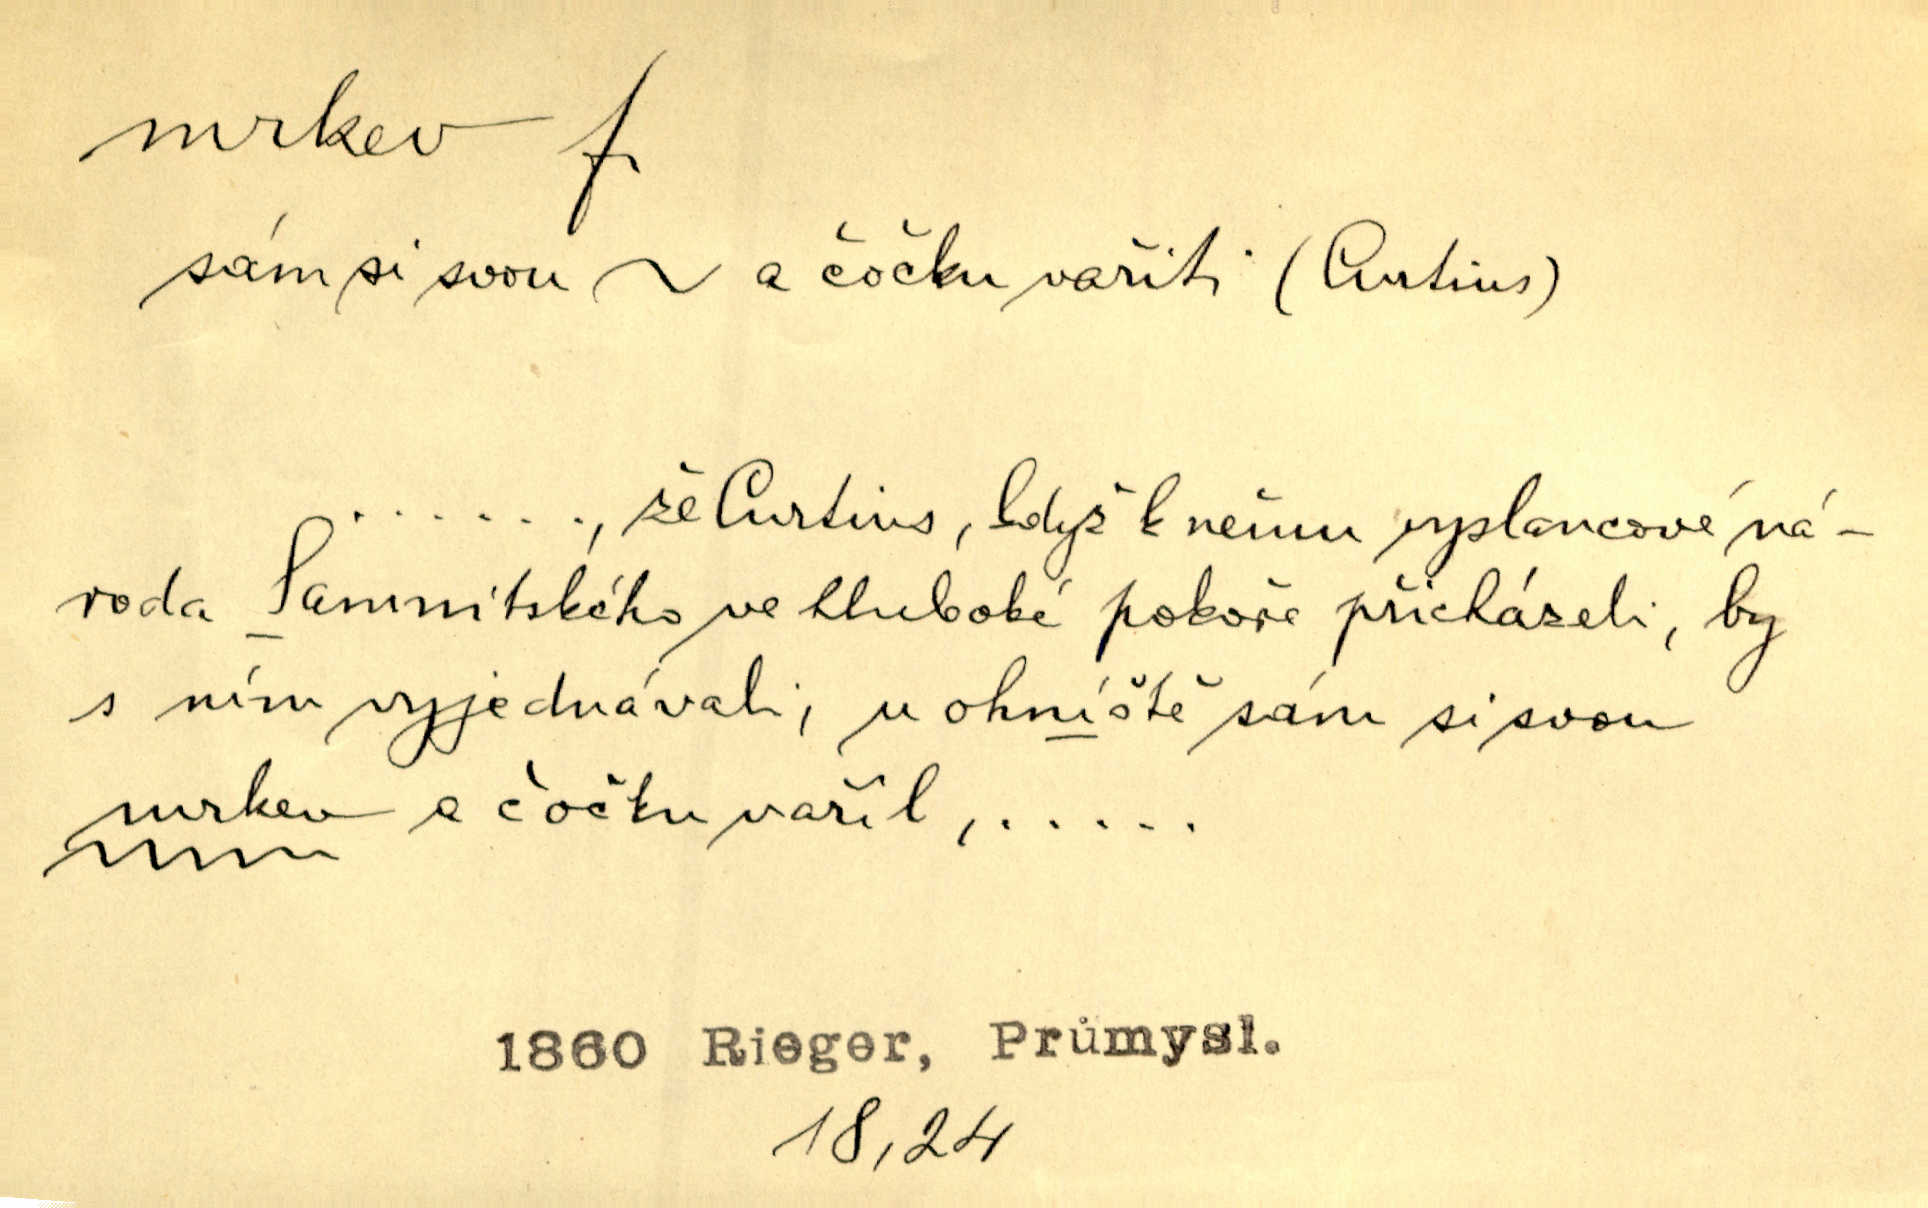 mrkev f.
sám si svou ~ a čočku vařiti (Curtius)
......., že Curtius, když k němu vyslancové ná-
roda Samnitského ve hluboké pokoře přicházeli, by
s ním vyjednávali, u ohníště sám si svou
mrkev a čočku vařil, .....
1860 Rieger, Průmysl.
18,24